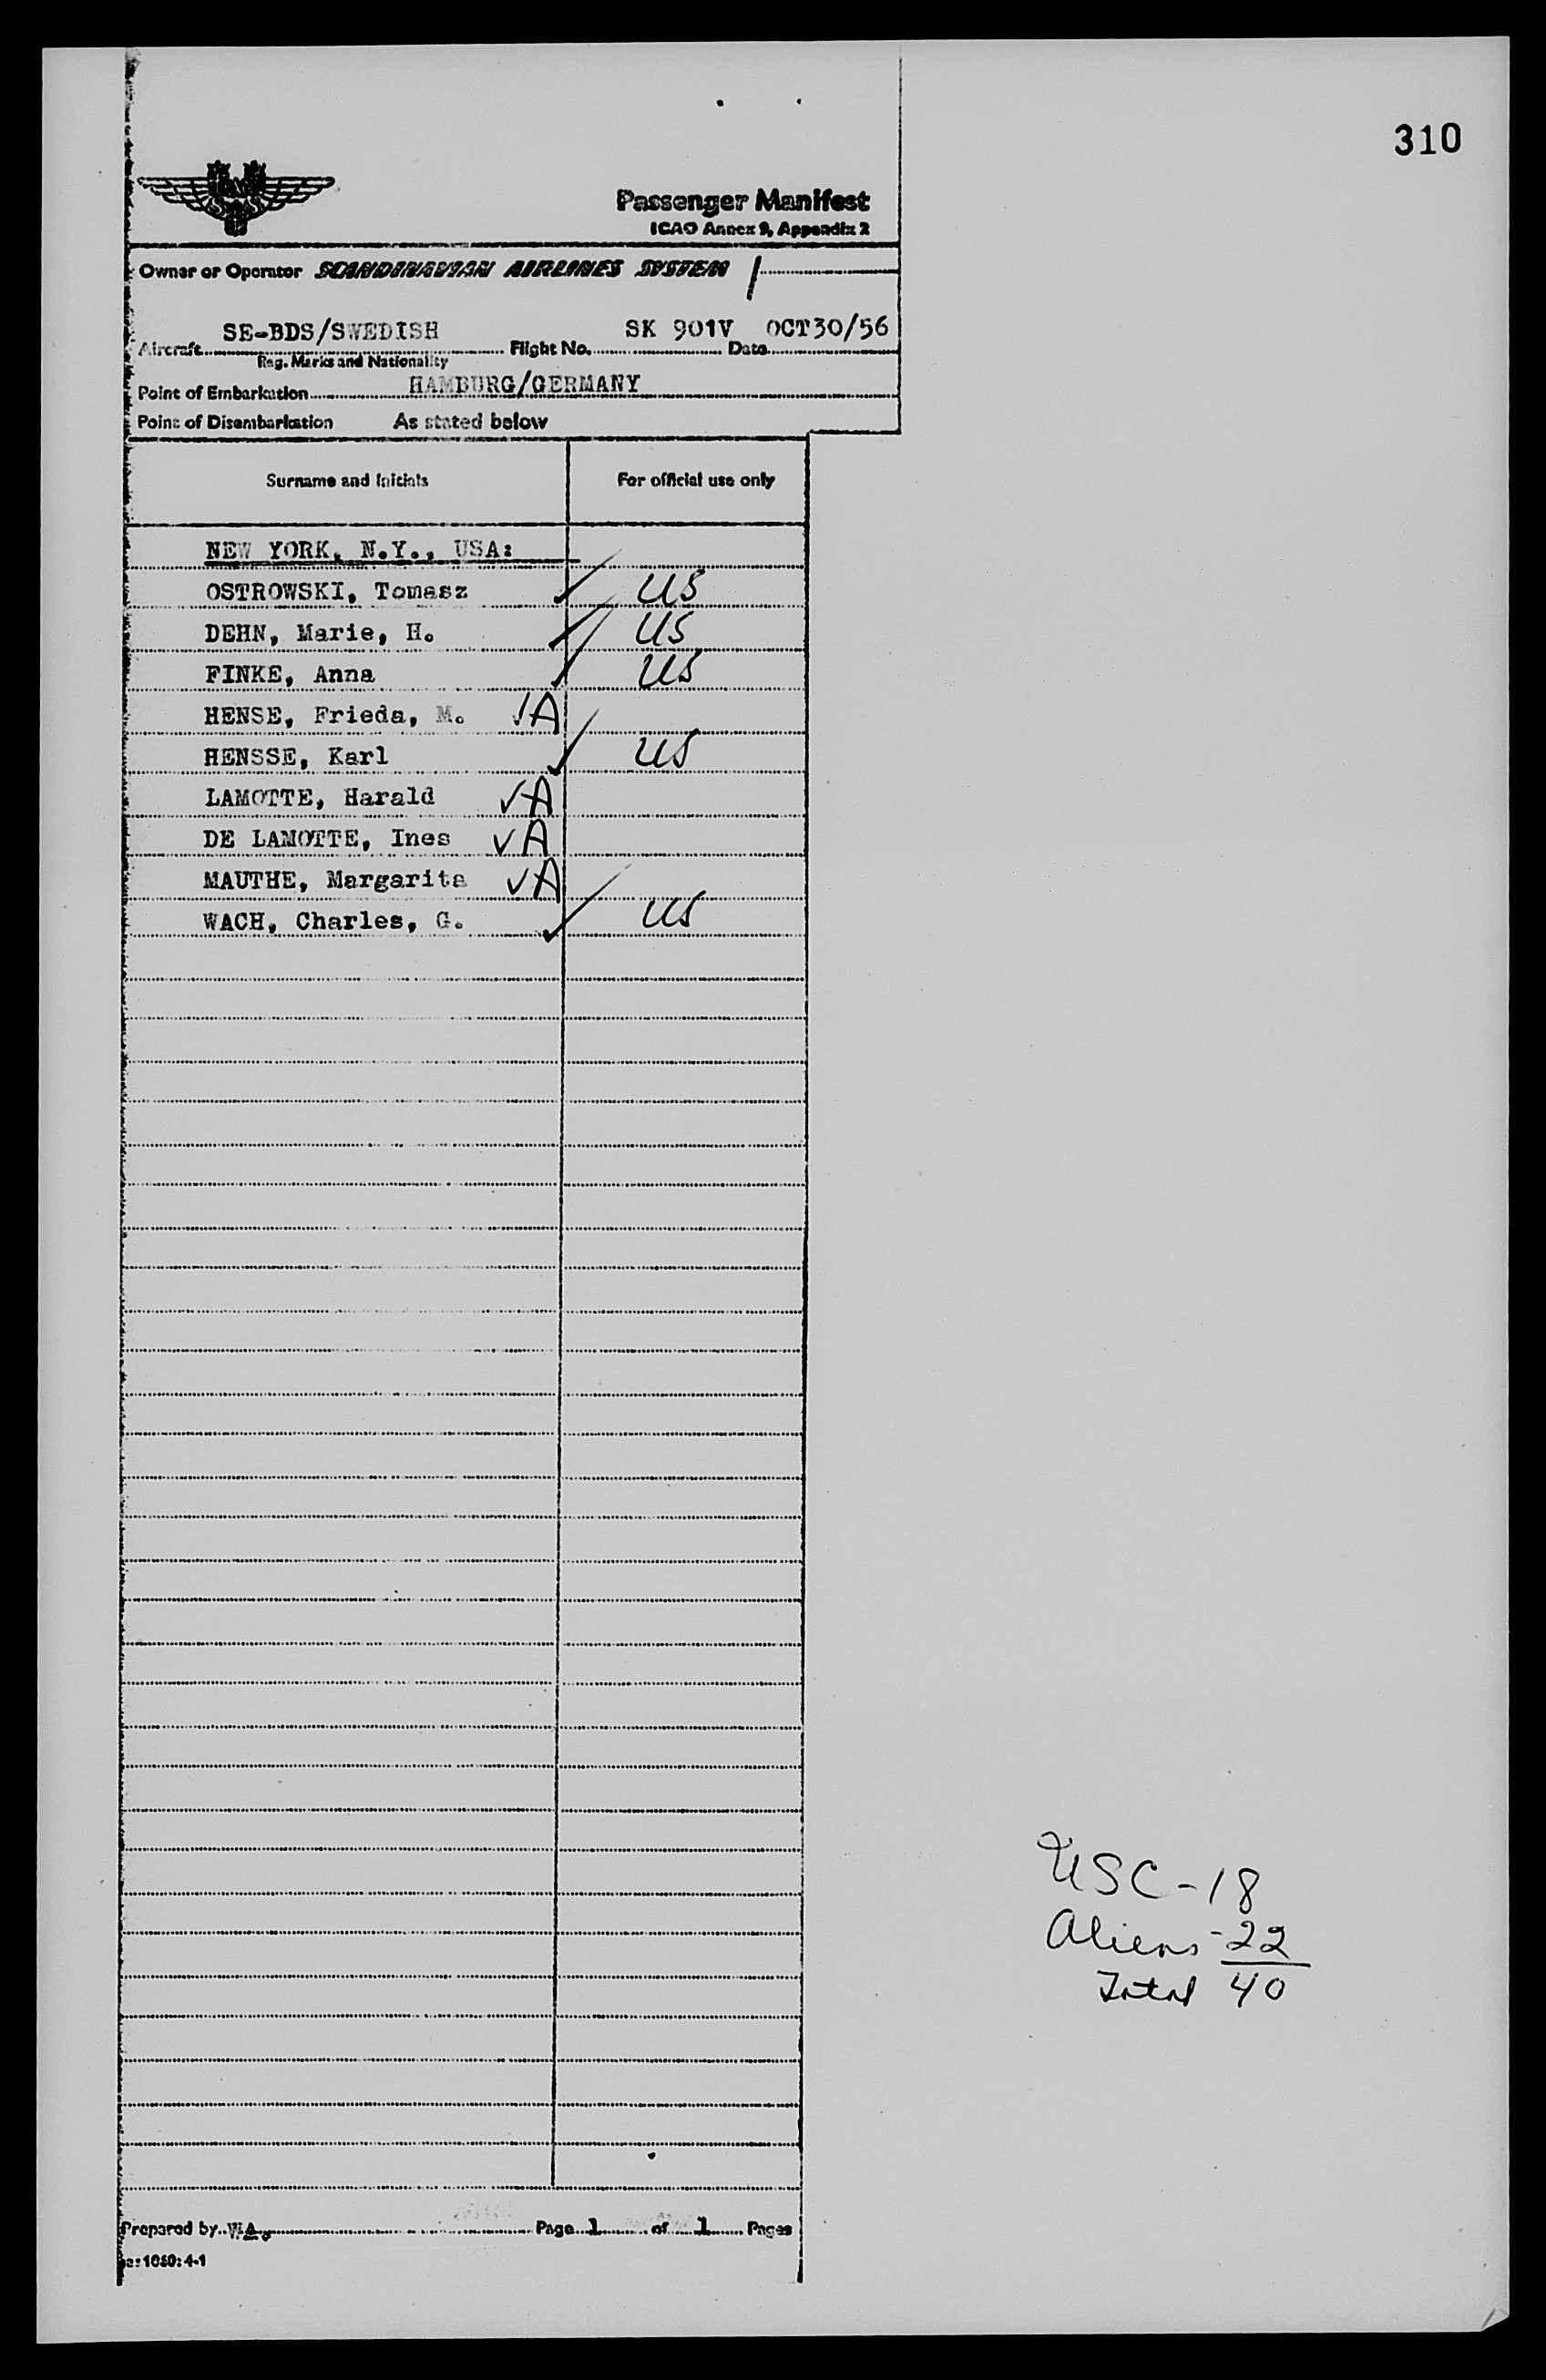 310
Passenger Manifest
ICAO Annex 9, Appendix 2
Owner or Operator SCANDINAVIAN AIRLINES SYSTEM
SE-BDS/SWEDISH SK 901V OCT30/56
Aircraft Flight No. Date
Reg. Marks and Nationality
Point of Embarkation HAMBURG/GERMANY
Point of Disembarkation As stated below
Surname and Initials For official use only
NEW YORK, N.Y., USA:
OSTROWSKI, Tomasz ✓ US
DEHN, Marie, H. ✓ US
FINKE, Anna ✓ US
HENSE, Frieda, M. ✓A
HENSSE, Karl ✓ US
LAMOTTE, Harald ✓A
DE LAMOTTE, Ines ✓A
MAUTHE, Margarita ✓A
WACH, Charles, G. ✓ US
USC-18
Aliens-22
Total 40
Prepared by WA. Page 1 of 1 Pages
1050:4-1